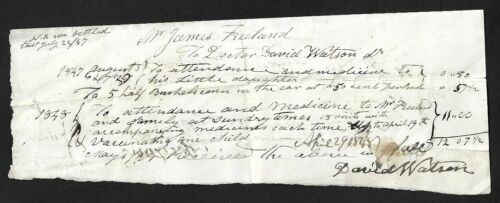 N.B. we settled
last July 23/47
Mr James Freeland
To Doctor David Watson dr
1847 august &
To attendance and medicine to
his little daughter
0 .. 50
To 5 half bushels corn in the ear at 50 cent per bush
0 .. 57½
1848
To attendance and medicine to Mr Freeland
and family at sundry times 15 visits with
accompanying medicines each time up to april 19th
Vaccinating one child
11..00
12 07½
Received the above in full
David Watson